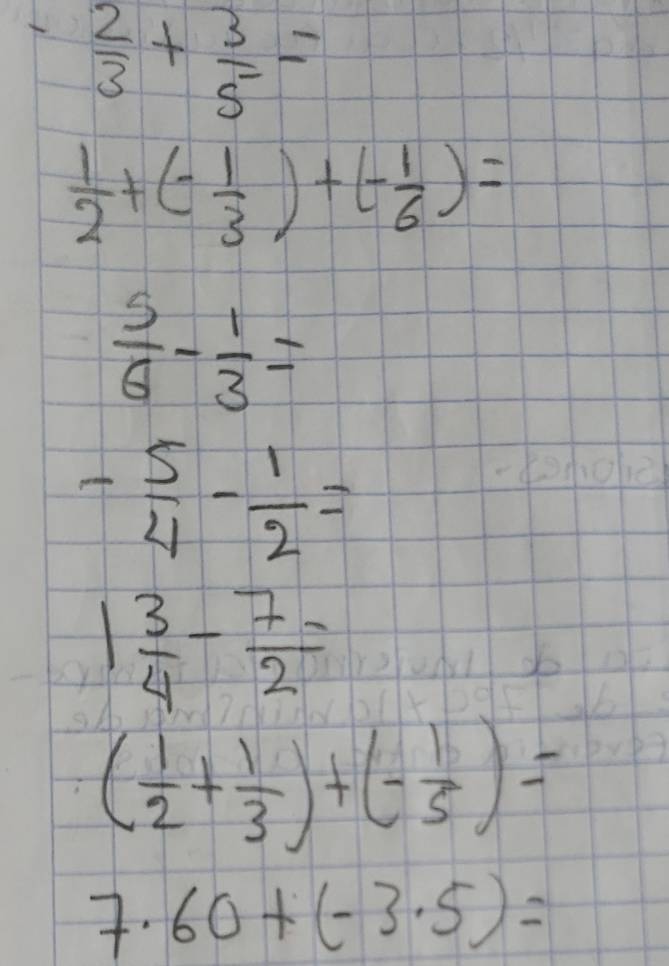 - 2/3 + 3/5 =
1/2 + (- 1/3) + (- 1/6) =
5/6 - 1/3 =
- 5/4 - 1/2 =
1 3/4 - 7/2 =
(1/2 + 1/3) + (- 1/5) =
7.60 + (- 3.5) =